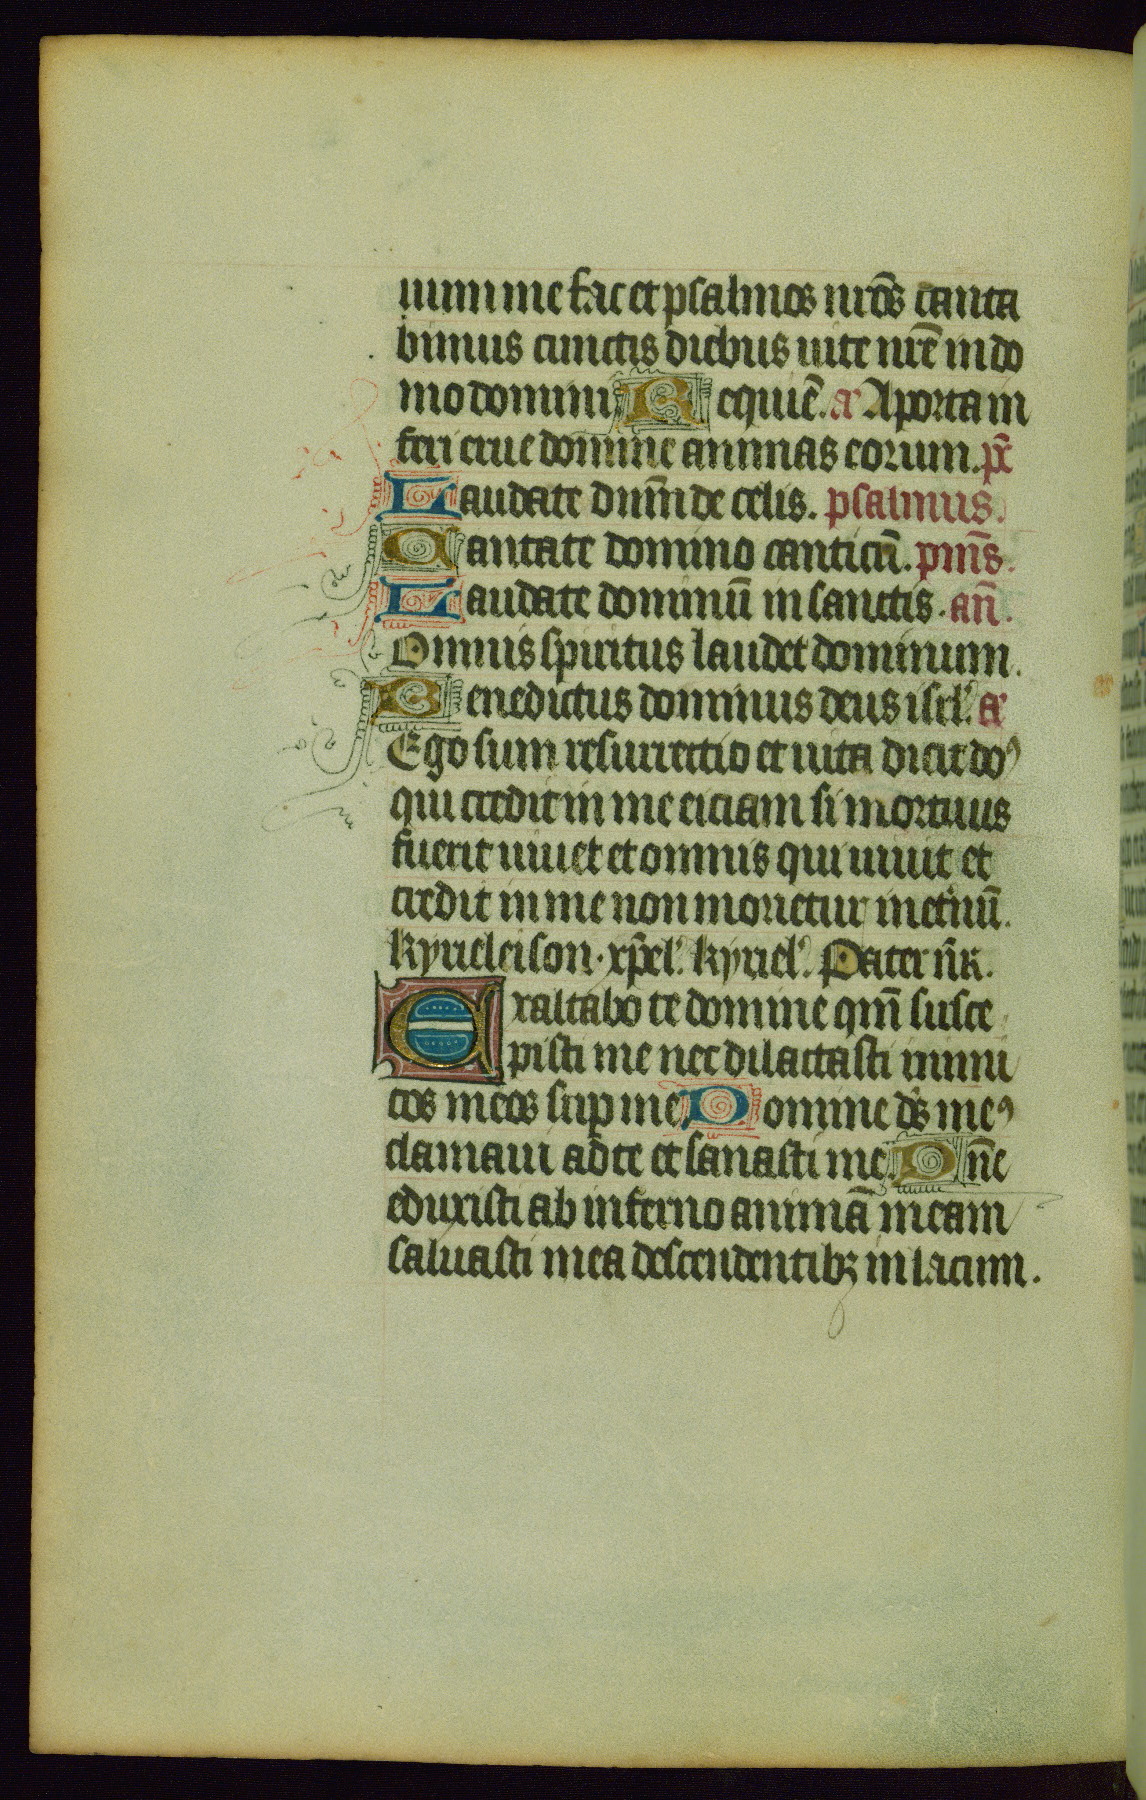 uum me fac et psalmos nr̄os canta
bimus cunctis diebus uite nr̄e in do
mo domini Requiē. a᷑ A porta in
feri erue domine animas eorum. ps̄
Laudate dn̄m de celis. psalmus.
Cantate domino canticū. pm̄s.
Laudate dominū in sanctis. an̄.
Omnis spiritus laudet dominum.
Benedictus dominus deus isrl'. a᷑
Ego sum resurrectio et uita dicit do⁹
qui credit in me eciam si mortuus
fuerit uiuet et omnis qui uiuit et
credit in me non morietur inet'nū.
kyrieleison. xp̄el'. kyriel'. Pater nr̄.
Exaltabo te domine qm̄ susce
pisti me nec dilectasti inimi
cos meos sup me Domine ds̄ me⁹
clamaui ad te et sanasti me. Dn̄e
eduxisti ab inferno animā meam
saluasti me a descendentibꝫ in lacum.